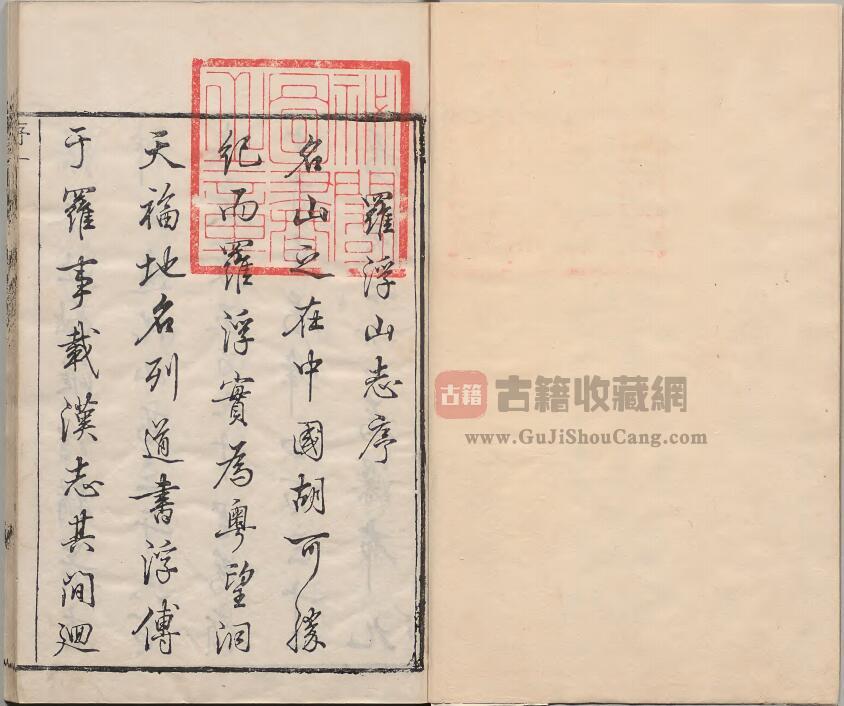 羅浮山志序
名山之在中國胡可勝
紀而羅浮實為粵望洞
天福地名列道書浮傅
于羅事載漢志其間廻
序一
祕閣
圖書
之章
古籍
古籍收藏網
www.GuJiShouCang.com